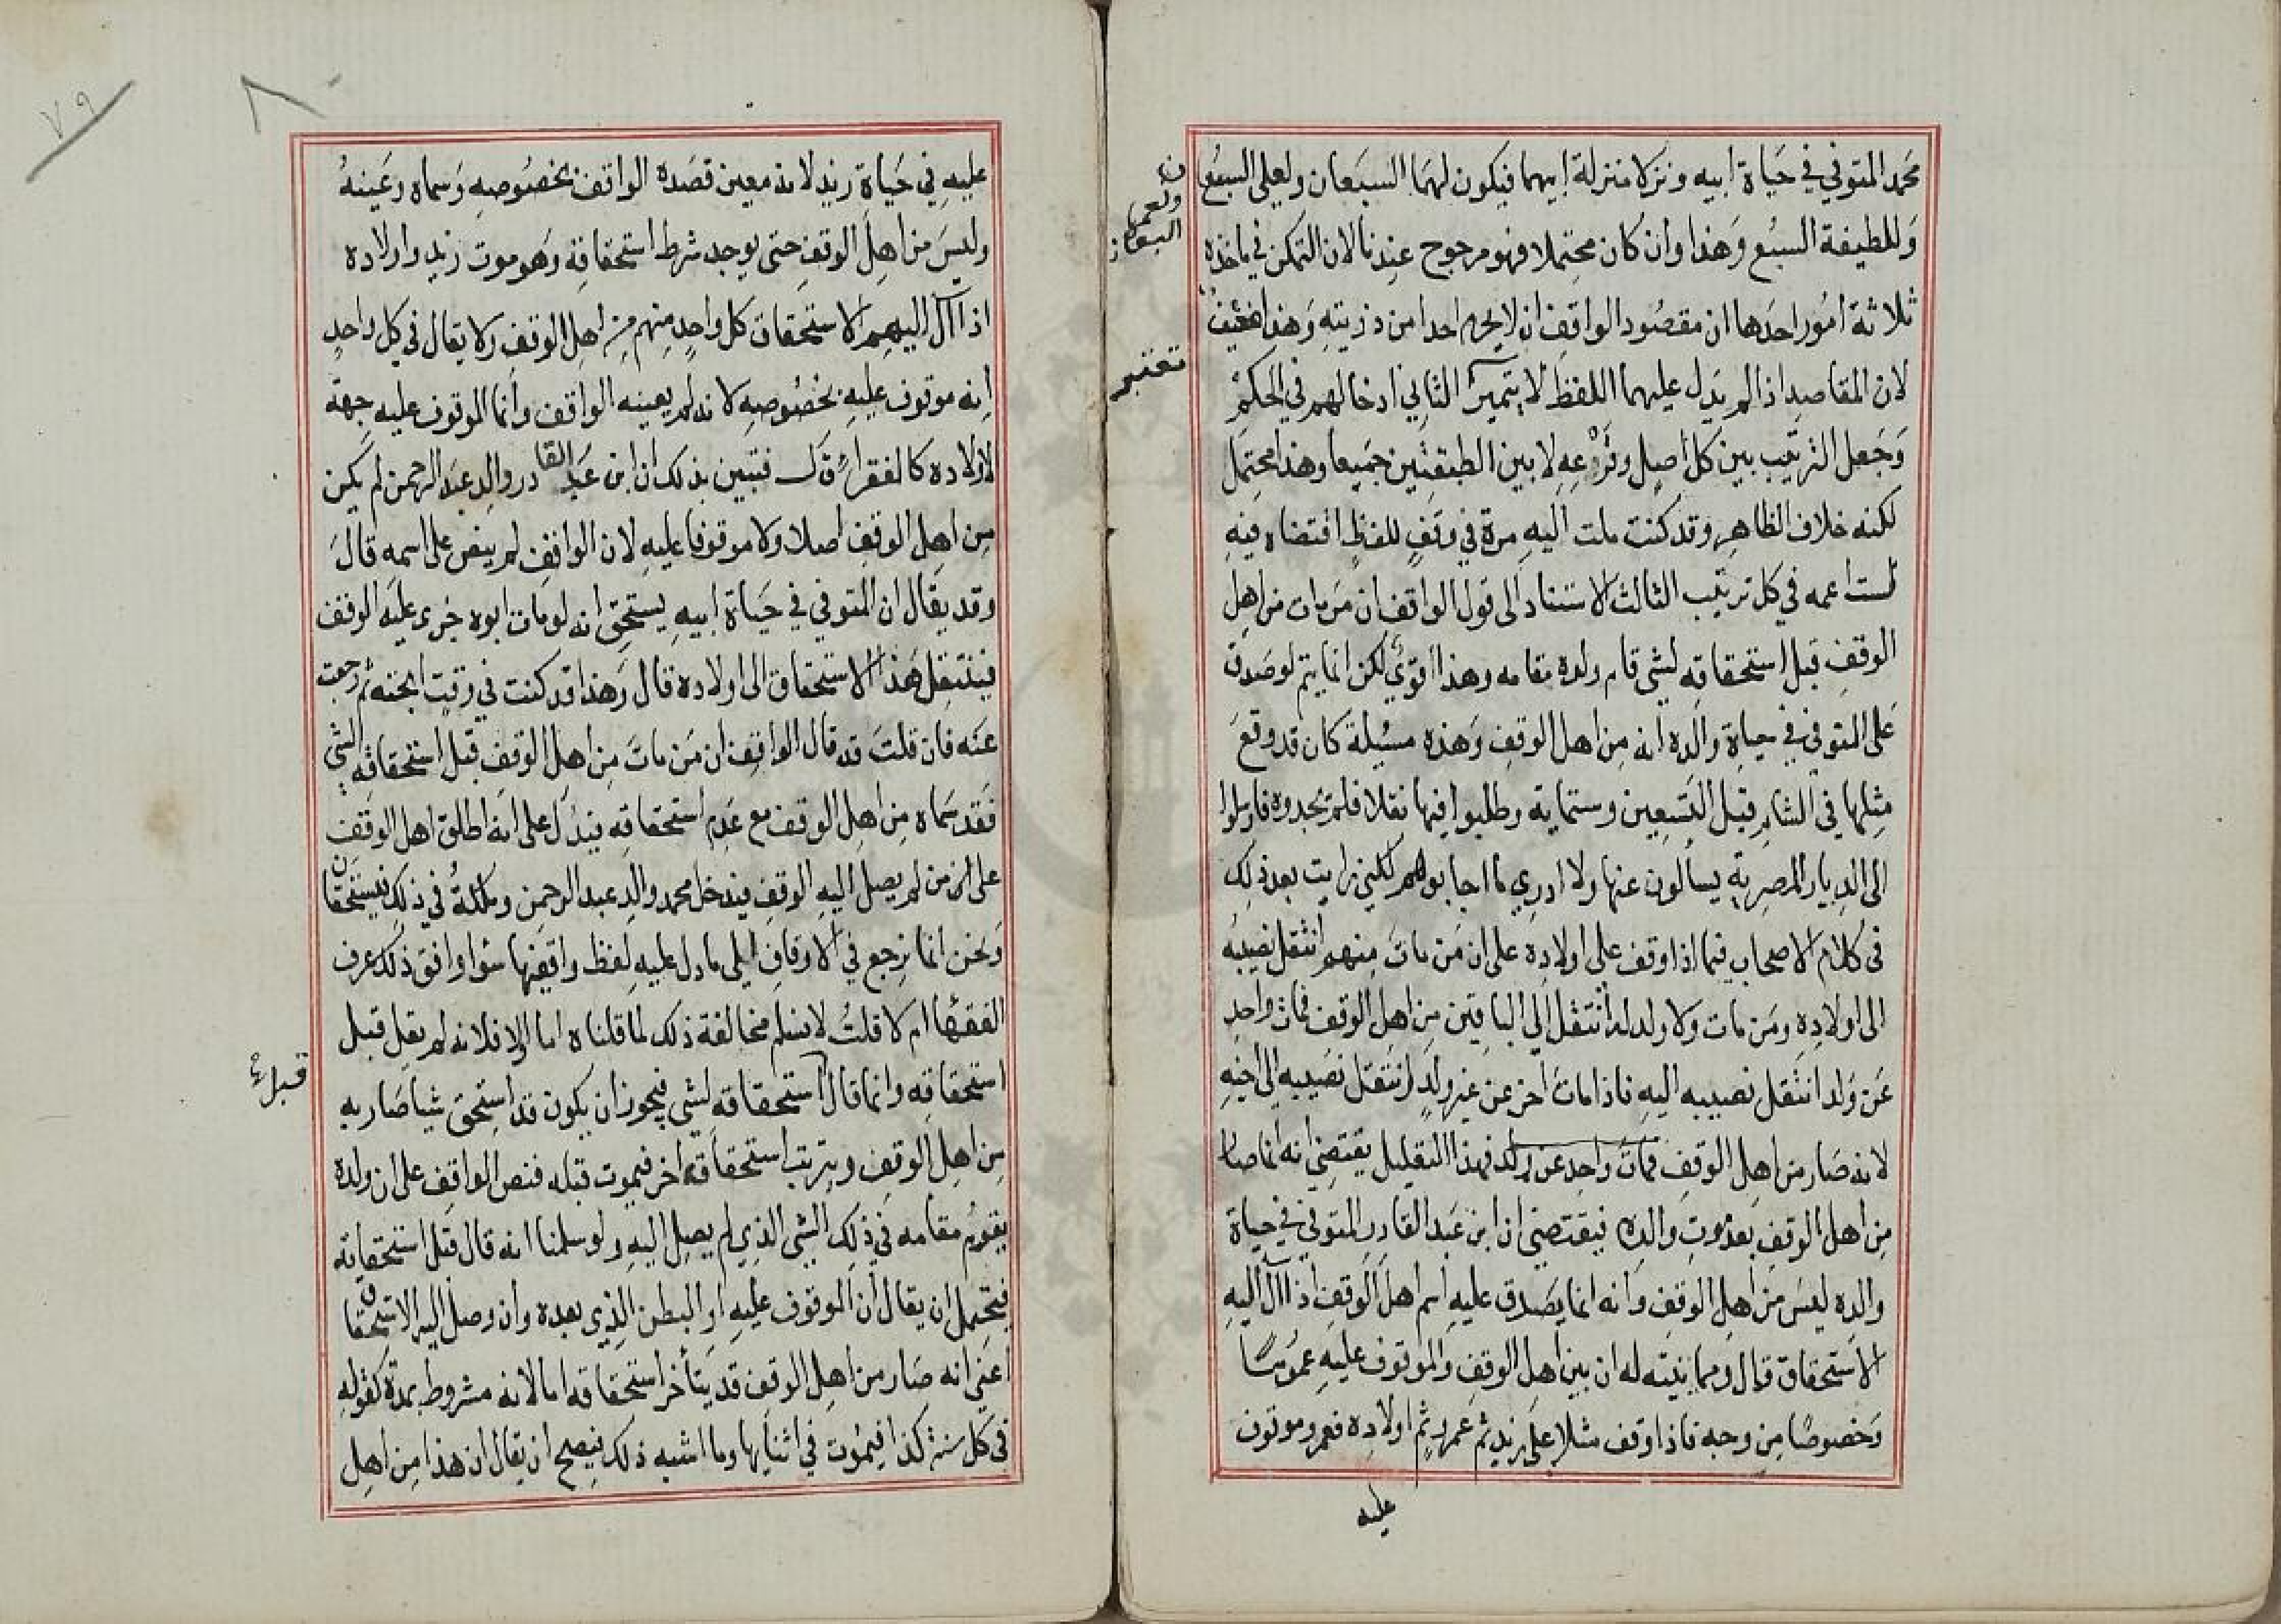 محمد المتوفي في حياة ابيه ونزلا منزلة ابيهما فيكون لهما السبعان ولعلي السبع
ولعمها
السبعان
وللطيفة السبع وهذا وان كان محتملا فهو مرجوح عندنا لان التمكن في ماخذه
ثلاثة امور احدها ان مقصود الواقف ان لا يحرم احدا من ذريته وهذا ضعيف
لان المقاصد اذا لم يدل عليهما اللفظ لا يتميز الثاني ادخالهم في الحكم
تعتبر
وجعل الترتيب بين كل اصل وفرعه لا بين الطبقتين جميعا وهذا محتمل
لكنه خلاف الظاهر وقد كنت ملت اليه مرة في وقف للفظ اقتضاه فيه
لست اعمه في كل ترتيب الثالث الاستناد الى قول الواقف ان من مات من اهل
الوقف قبل استحقاقه لشي قام ولده مقامه وهذا اقوى لكن انما يتم لو صدق
على المتوفي في حياة والده انه من اهل الوقف وهذه مسئلة كان قد وقع
مثلها في الشام قبل التسعين وستماية وطلبوا فيها نقلا فلم يجدوه فارسلوا
الى الديار المصرية يسالون عنها ولا ادري ما اجابوهم لكني رايت بعد ذلك
في كلام الاصحاب فيما اذا وقف على اولاده على ان من مات منهم انتقل نصيبه
الى اولاده ومن مات ولا ولد له انتقل الى الباقين من اهل الوقف فمات واحد
عن ولد انتقل نصيبه اليه فاذا مات اخر عن غير ولد انتقل نصيبه الى اخيه
لانه صار من اهل الوقف فمات واحد عن ولد فهذا التعليل يقتضي انه انما صار
من اهل الوقف بعد موت والده فيقتضي ان ابن عبد القادر المتوفي في حياة
والده ليس من اهل الوقف وانه انما يصدق عليه اسم اهل الوقف اذا آل اليه
الاستحقاق قال ومما بنيته له ان بين اهل الوقف والموقوف عليه عموما
وخصوصا من وجه فاذا وقف مثلا على زيد ثم عمرو ثم اولاده فعمرو موقوف
عليه
٧٩
٨٠
عليه في حياة زيد لانه معين قصده الواقف بخصوصه وسماه وعينه
وليس من اهل الوقف حتى يوجد شرط استحقاقه وهو موت زيد واولاده
اذا آل اليهم الاستحقاق كل واحد منهم من اهل الوقف ولا يقال في كل واحد
انه موقوف عليه بخصوصه لانه لم يعينه الواقف وانما الموقوف عليه جهة
الاولاده كالفقراء قال فتبين بذلك ان ابن عبد القادر والد عبد الرحمن لم يكن
من اهل الوقف اصلا ولا موقوفا عليه لان الواقف لم ينص على اسمه قال
وقد يقال ان المتوفي في حياة ابيه يستحق انه لو مات ابوه جرى عليه الوقف
فينتقل هذا الاستحقاق الى اولاده قال وهذا قد كنت في وقت ابحثه ثم رجعت
عنه فان قلت قد قال الواقف ان من مات من اهل الوقف قبل استحقاقه لشي
فقد سماه من اهل الوقف مع عدم استحقاقه فيدل على انه اطلق اهل الوقف
على ان من لم يصل اليه الوقف فيدخل محمد والد عبد الرحمن وملكة في ذلك فيستحقان
ونحن انما نرجع في الاوقاف الى ما دل عليه لفظ واقفها سوا وافق ذلك عرف
الفقها ام لا قلت لا نسلم مخالفة ذلك لما قلناه اما اولا فلانه لم يقل قبل
استحقاقه وانما قال استحقاقه لشي فيجوز ان يكون قد استحق شيا صار به
قبل
من اهل الوقف ويترتب استحقاقه اخر فيموت قبله فنص الواقف على ان ولده
يقوم مقامه في ذلك الشي الذي لم يصل اليه ولو سلمنا انه قال قبل استحقاقه
فيحتمل ان يقال ان الموقوف عليه او البطن الذي بعده وان وصل اليه الاستحقاق
اعني انه صار من اهل الوقف قد يتأخر استحقاقه اما لانه مشروط بمدة كقوله
في كل سنة كذا فيموت في اثنايها وما اشبه ذلك فيصح ان يقال ان هذا من اهل